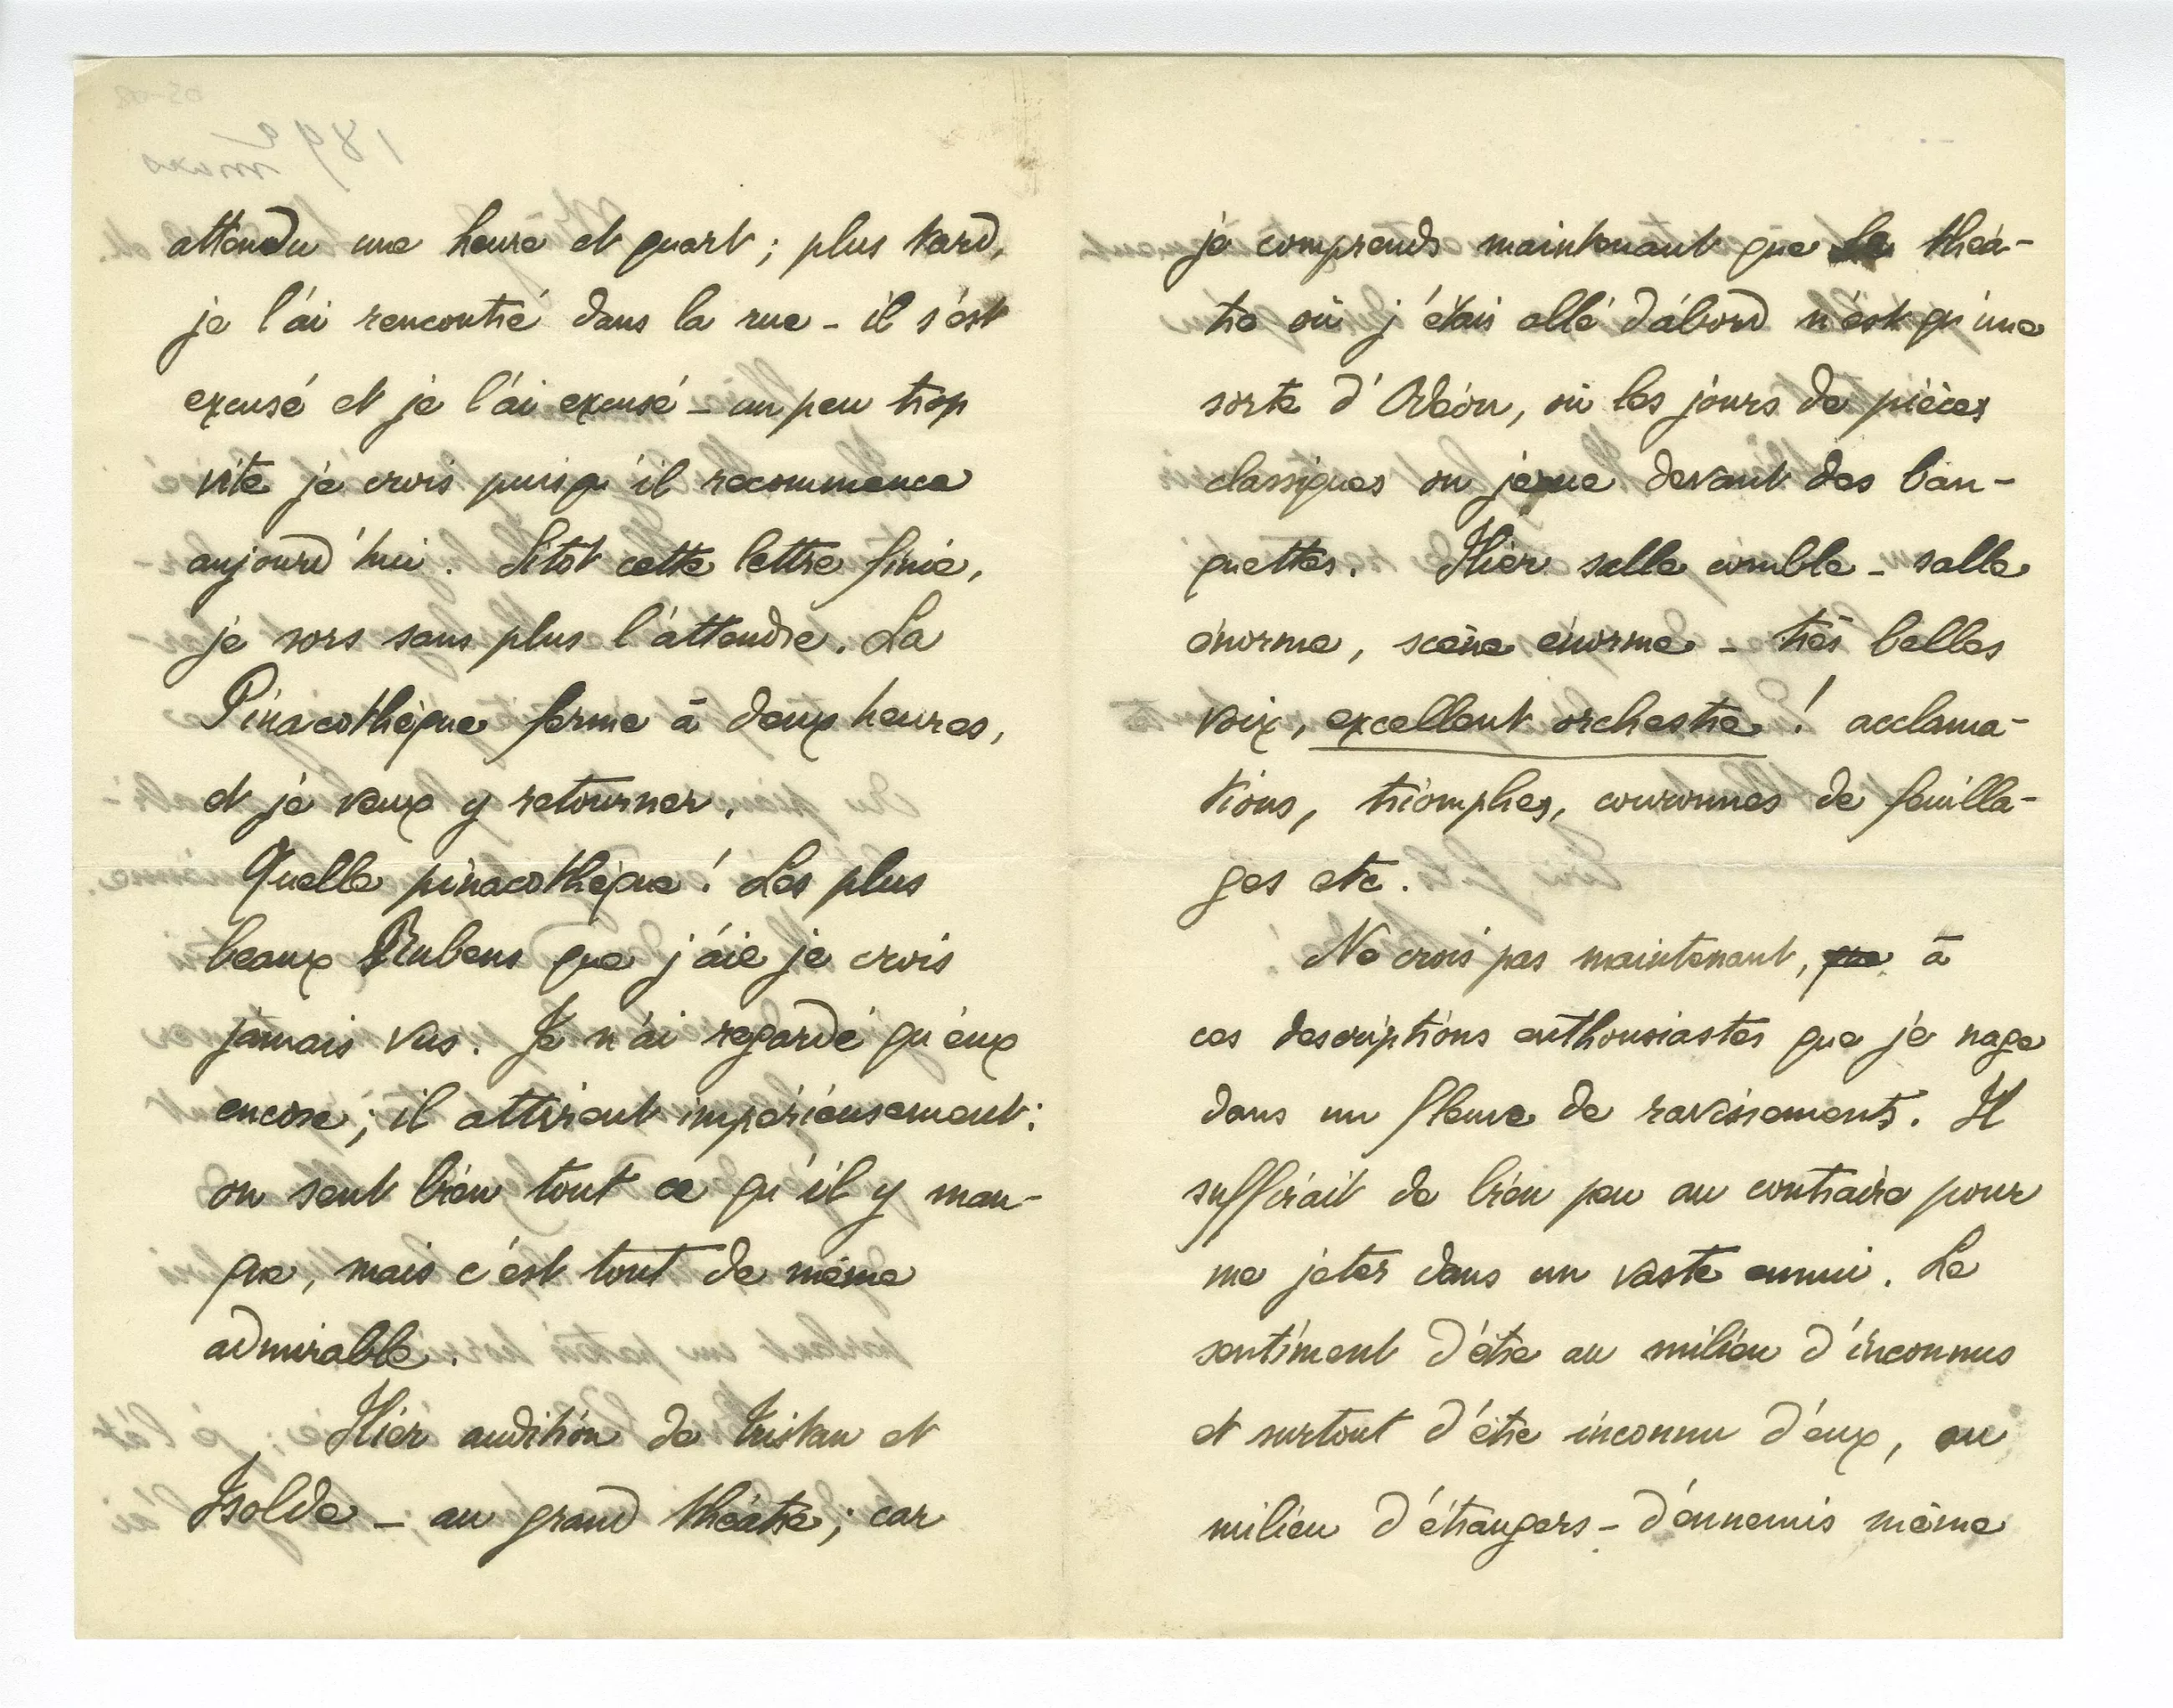 attendu une heure et quart ; plus tard,
je l'ai rencontré dans la rue – il s'est
excusé et je l'ai excusé – un peu trop
vite je crois puisqu'il recommence
aujourd'hui. Sitôt cette lettre finie,
je sors sans plus l'attendre. La
Pinacothèque ferme à deux heures,
et je veux y retourner.
Quelle pinacothèque ! Les plus
beaux Rubens que j'aie je crois
jamais vus. Je n'ai regardé qu'eux
encore ; il attirent impérieusement :
on sent bien tout ce qu'il y man-
que, mais c'est tout de même
admirable.
Hier audition de Tristan et
Isolde – au grand théâtre ; car
je comprends maintenant que le théâ-
tre où j'étais allé d'abord n'est qu'une
sorte d'Odéon, où les jours de pièces
classiques on joue devant des ban-
quettes. Hier salle comble – salle
énorme, scène énorme – très belles
voix, excellent orchestre ! acclama-
tions, triomphes, couronnes de feuilla-
ges etc.
Ne crois pas maintenant, que à
ces descriptions enthousiastes que je nage
dans un fleuve de ravissements. Il
suffirait de bien peu au contraire pour
me jeter dans un vaste ennui. Le
sentiment d'être au milieu d'inconnus
et surtout d'être inconnu d'eux, au
milieu d'étrangers – d'ennemis même